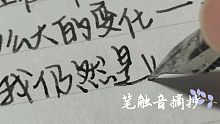 么大的变化一
我仍然是
笔触音摘抄